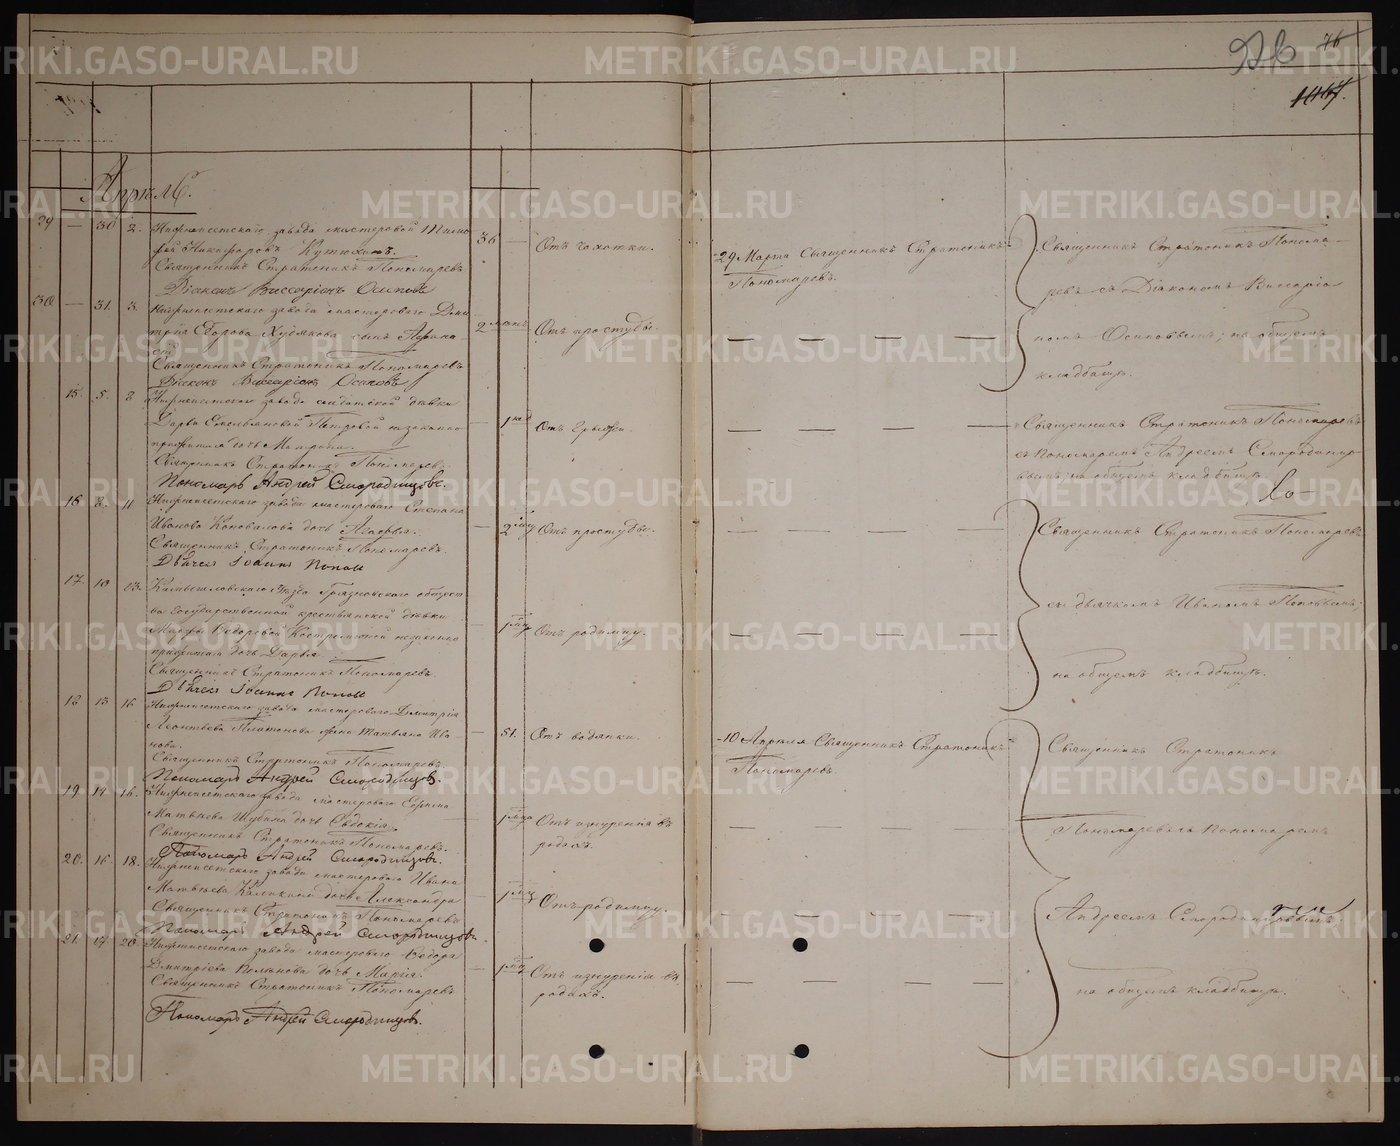 926 76
1067.
Апрѣль.
29 — 30 2. Нижнеисетскаго завода мастеровой Тимо
фей Никифоровъ
Священникъ Стратоникъ Пономаревъ
Діаконъ Виссаріонъ Осиповъ
36 — Отъ чахотки.
29 Марта Священникъ Стратоникъ
Пономаревъ.
Священникъ Стратоникъ Понома-
ревъ съ Діакономъ Виссаріо
номъ Осиповымъ; на общемъ
кладбищѣ.
30 — 31. 3. Нижнеисетскаго завода мастероваго Дми
трія Егорова Худякова сынъ Афана-
сій
Священникъ Стратоникъ Пономаревъ
Діаконъ Виссаріонъ Осиповъ
Отъ простуды.
15. 5. 8 Нижнеисетскаго завода солдатской дѣвки
Дарьи Емельяновой Петровой незаконно
прижитая дочь Матрона
Священникъ Стратоникъ Пономаревъ.
Пономарь Андрей Смородинцовъ.
1 нед Отъ грыжи.
Священникъ Стратоникъ Пономаревъ
съ пономаремъ Андреемъ Смородинцо
вымъ на общемъ кладбищѣ.
16 8. 11 Нижнеисетскаго завода мастероваго Степана
Иванова Коновалова дочь Агафья.
Священникъ Стратоникъ Пономаревъ.
Дьячекъ Іоаннъ Попов
2 мц Отъ простуды.
Священникъ Стратоникъ Пономаревъ
съ дьячкомъ Иваномъ Поповымъ;
на общемъ кладбищѣ.
17. 10 13. Камышловскаго уѣзда Грязновскаго общест
ва государственной крестьянской дѣвки
Марфы Ѳедоровой Костромитой незаконно
прижитая дочь Дарья
Священникъ Стратоникъ Пономаревъ.
Дьячекъ Іоаннъ Попов
1 мц Отъ родимцу.
18 13 16 Нижнеисетскаго завода мастероваго Дмитрія
Леонтьева Платонова жена Татьяна Ива
нова.
Священникъ Стратоникъ Пономаревъ.
Пономарь Андрей Смородинцовъ
51. Отъ водянки.
10 Апрѣля Священникъ Стратоникъ
Пономаревъ.
Священникъ Стратоникъ
Пономаревъ съ пономаремъ
Андреемъ Смородинцовымъ
на общемъ кладбищѣ.
19 14 16. Нижнеисетскаго завода мастероваго Ефима
Матвѣева Шубина дочь Евдокія
Священникъ Стратоникъ Пономаревъ.
Пономарь Андрей Смородинцовъ.
Отъ изнуренія въ
родахъ.
20. 16 18. Нижнеисетскаго завода мастероваго Ивана
Матвѣева Калинина дочь Александра
Священникъ Стратоникъ Пономаревъ
Пономарь Андрей Смородинцовъ.
1 мц Отъ родимцу.
21. 17 20. Нижнеисетскаго завода мастероваго Ѳедора
Дмитріева дочь Марія.
Священникъ Стратоникъ Пономаревъ
Пономарь Андрей Смородинцовъ.
1 мц Отъ изнуренія въ
родахъ.
METRIKI.GASO-URAL.RU